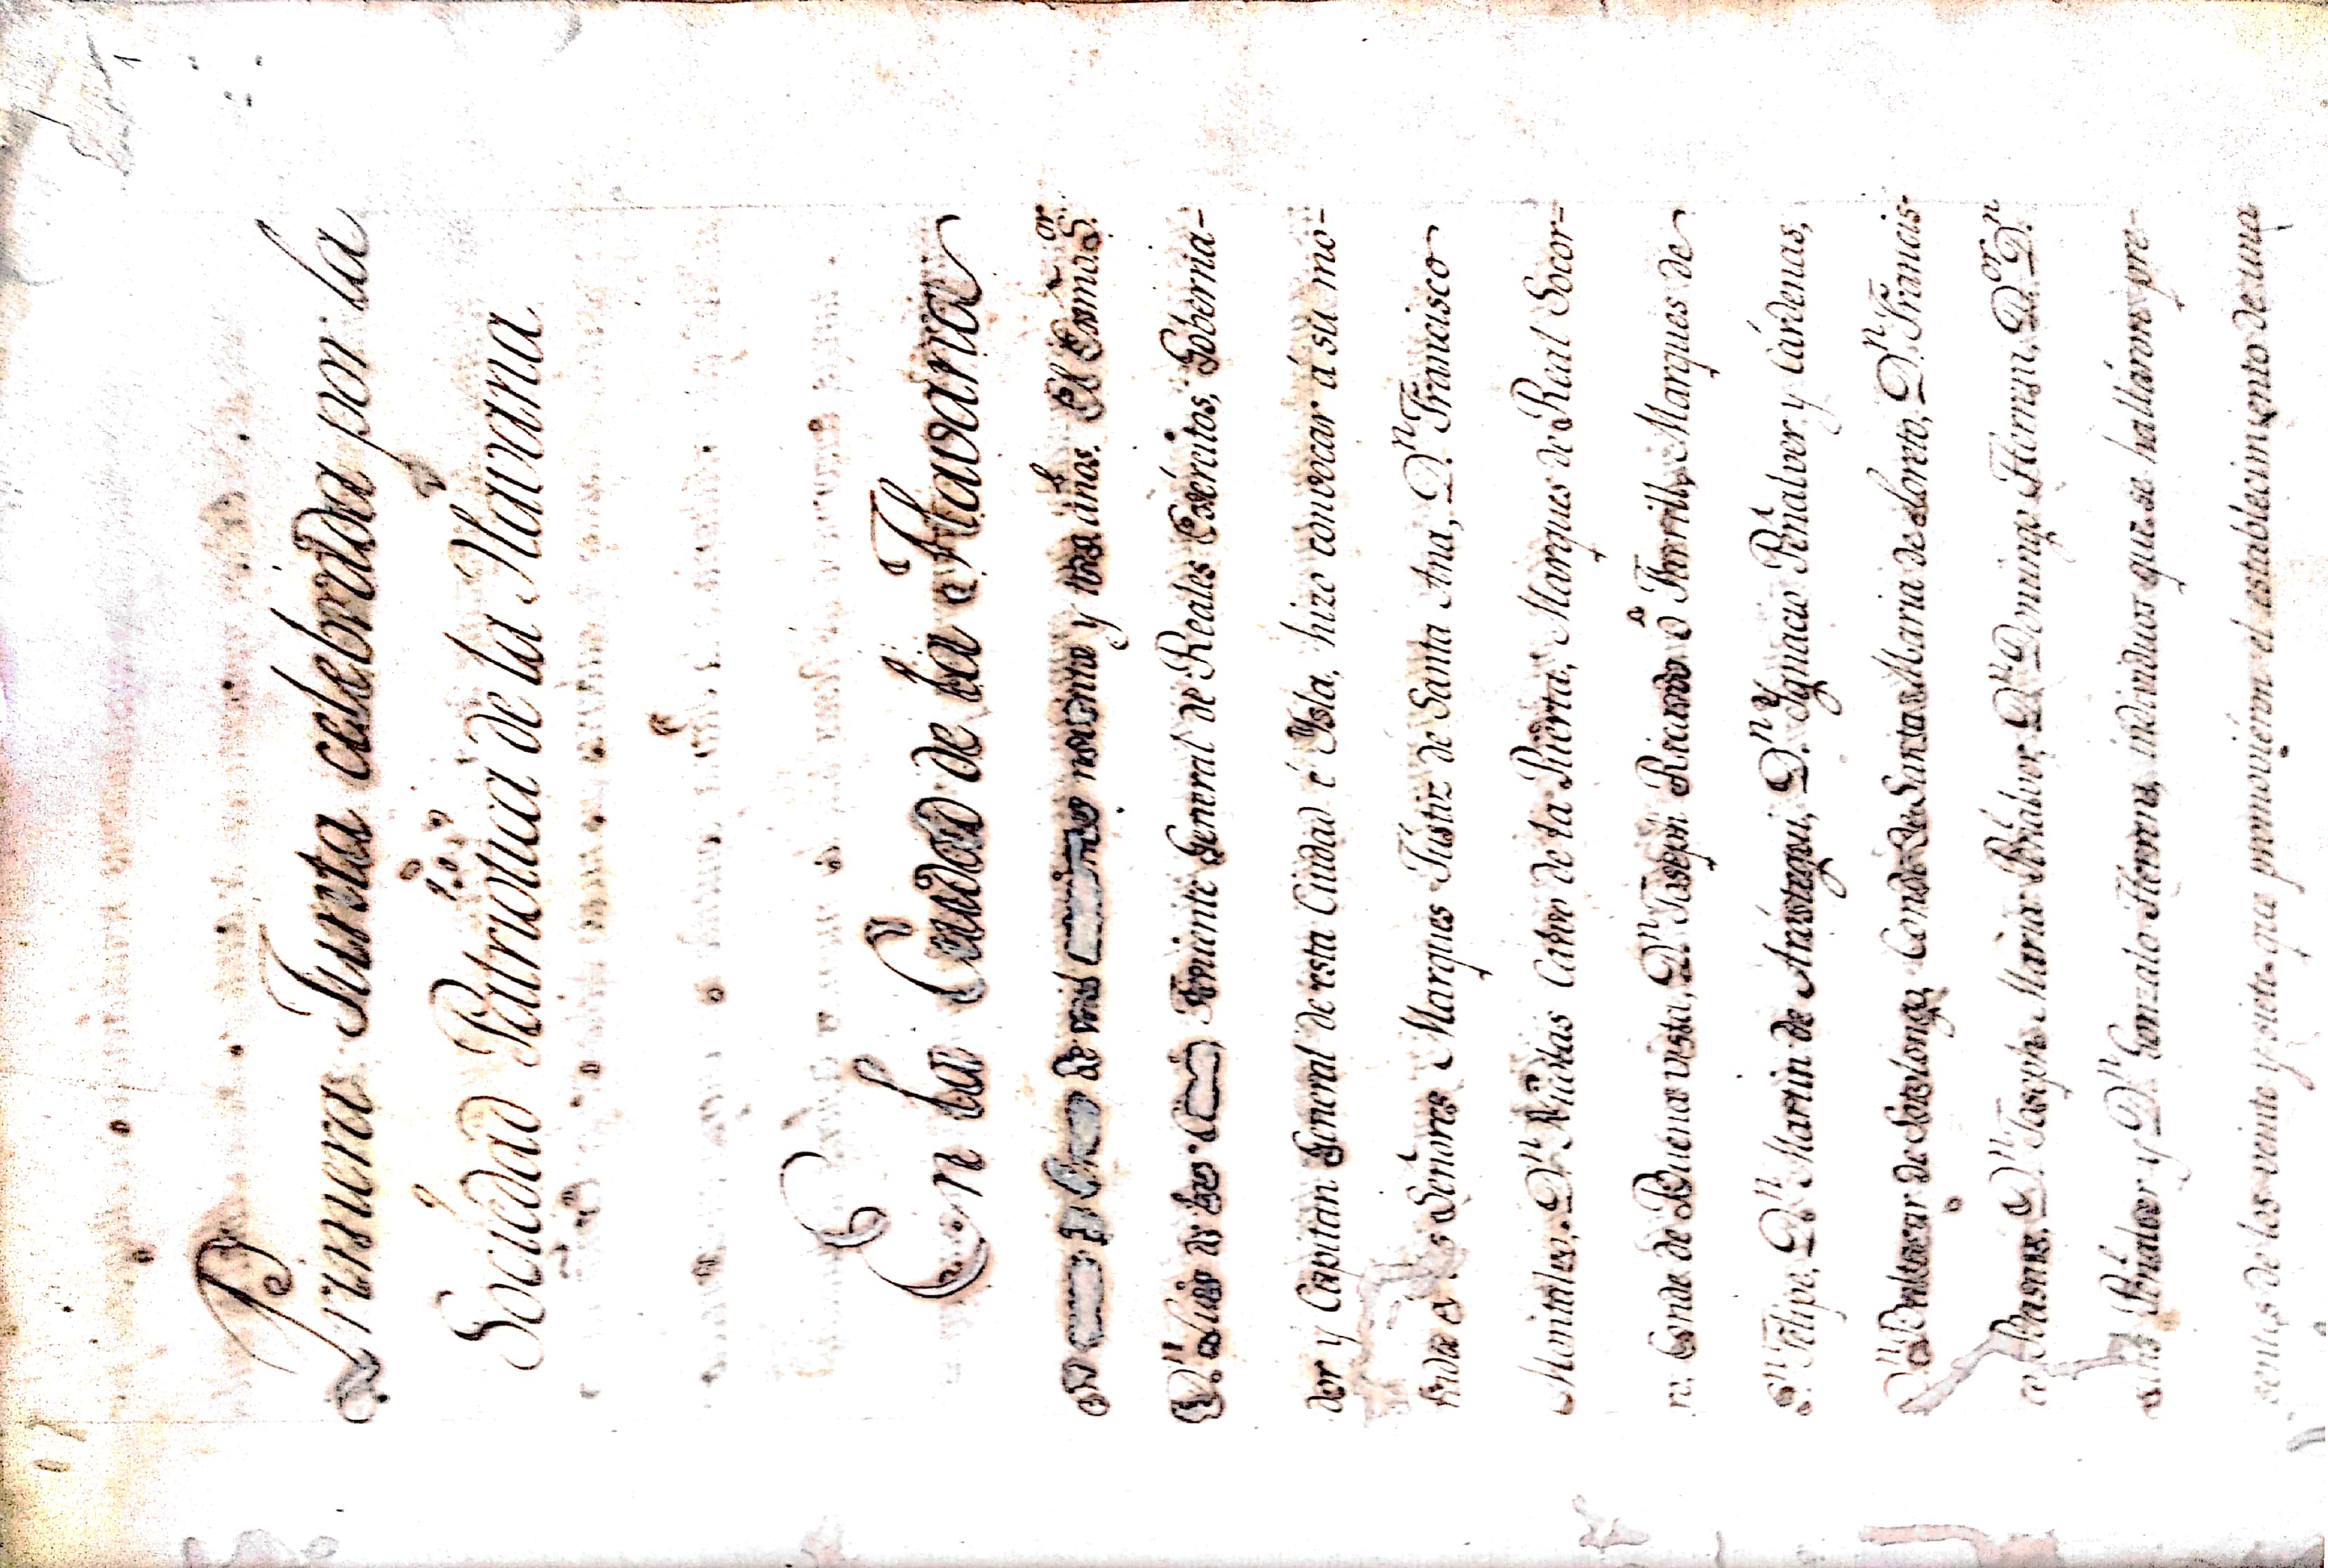 Primera Junta celebrada por la
Sociedad Patriotica de la Havana
En la Ciudad de la Havana
de mil novecientos y tres años. El Exmô. S.or
D.n Luis de las Teniente General de Reales Exércitos, Goberna-
dor y Capitan General de esta Ciudad é Ysla, hizo convocar á su mo-
rada Señores Marques Jústiz de Santa Ana, D.n Francisco
Montalvo, D.n Nicolas Calvo de la Puerta, Marques de Real Socor-
ro. Conde de Buena vista, D.n Joseph Ricardo ô Farrill, Marques de
S.n Felipe, D.n Martin de Aróstegui, D.n Ygnacio Peñalver y Cárdenas,
D.n Baltasar de Sotolongo, Conde de Santa Maria de Loreto, D.n Francis-
co Basave, D.n Joseph Maria Peñalver, D.n Domingo Herrera, D.or D.n
Luis Peñalver y D.n Gonzalo Herrera, individuos que se halláron pre-
sentes de los veinte y siete que promoviéron el establecimiento de una